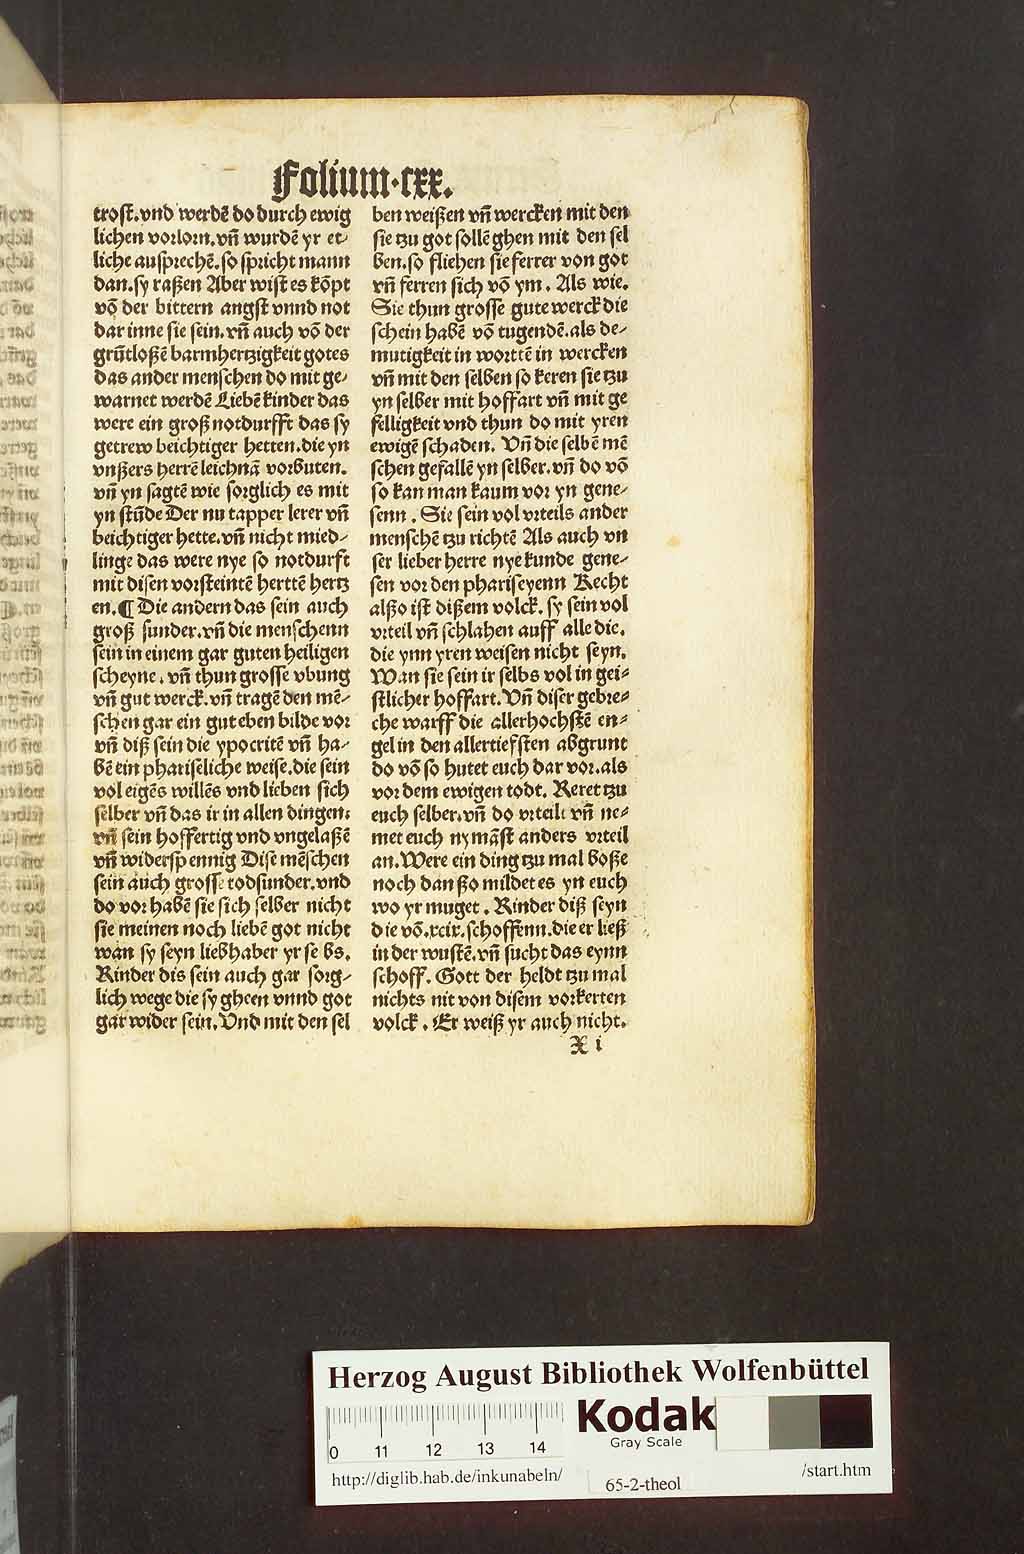 Folium.cxx.
trost.vnd werdē do durch ewig
lichen vorlorn.vñ wurdē yr et-
liche ausprechē.so spricht mann
dan.sy raßen Aber wist es kōpt
vō der bittern angst vnnd not
dar inne sie sein.vñ auch vō der
grūtloßē barmhertzigkeit gotes
das ander menschen do mit ge-
warnet werdē Liebē kinder das
were ein groß notdurfft das sy
getrew beichtiger hetten.die yn
vnßers herrē leichnā vorbuten.
vñ yn sagtē wie sorglich es mit
yn stūde Der nu tapper lerer vñ
beichtiger hette.vñ nicht mied-
linge das were nye so notdurft
mit disen vorsteintē herttē hertz
en.¶ Die andern das sein auch
groß sunder.vñ die menschenn
sein in einem gar guten heiligen
scheyne.vñ thun grosse vbung
vñ gut werck.vñ tragē den mē-
schen gar ein gut eben bilde vor
vñ diß sein die ypocritē vñ ha-
bē ein phariseliche weise.die sein
vol eigēs willēs vnd lieben sich
selber vñ das ir in allen dingen:
vñ sein hoffertig vnd vngelaßē
vñ widersp ennig Dise mēschen
sein auch grosse todsunder.vnd
do vor habē sie sich selber nicht
sie meinen noch liebē got nicht
wan sy seyn liebhaber yr se bs.
Kinder dis sein auch gar sorg-
lich wege die sy gheen vnnd got
gar wider sein.Vnd mit den sel
ben weißen vñ wercken mit den
sie tzu got sollē ghen mit den sel
ben.so fliehen sie ferrer von got
vñ ferren sich vō ym. Als wie.
Sie thun grosse gute werck die
schein habē vō tugendē.als de-
mutigkeit in worttē in wercken
vñ mit den selben so keren sie tzu
yn selber mit hoffart vñ mit ge
felligkeit vnd thun do mit yren
ewigē schaden. Vñ die selbē mē
schen gefallē yn selber.vñ do vō
so kan man kaum vor yn gene-
senn. Sie sein vol vrteils ander
menschē tzu richtē Als auch vn
ser lieber herre nye kunde gene-
sen vor den phariseyenn Recht
alßo ist dißem volck. sy sein vol
vrteil vñ schlahen auff alle die.
die ynn yren weisen nicht seyn.
Wan sie sein ir selbs vol in gei-
stlicher hoffart. Vñ diser gebre-
che warff die allerhochstē en-
gel in den allertiefsten abgrunt
do vō so hutet euch dar vor.als
vor dem ewigen todt. Keret tzu
euch selber.vñ do vrteilt vñ ne-
met euch nymāst anders vrteil
an.Were ein ding tzu mal boße
noch dan ßo mildet es yn euch
wo yr muget. Kinder diß seyn
die vō.xcix.schoffenn.die er ließ
in der wustē.vñ sucht das eynn
schoff. Gott der heldt tzu mal
nichts nit von disem vorkerten
volck. Er weiß yr auch nicht.
X i
Herzog August Bibliothek Wolfenbüttel
0 11 12 13 14
Kodak
Gray Scale
http://diglib.hab.de/inkunabeln/
65-2-theol
/start.htm